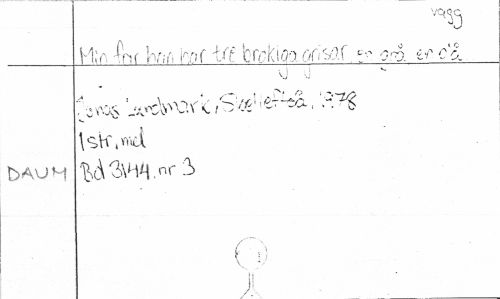 vagg
Min far han har tre brokiga grisar, en grå, en blå
Jonas Landmark, Skellefteå, 1978
1 str, mel
DAUM Bd 3144, nr 3